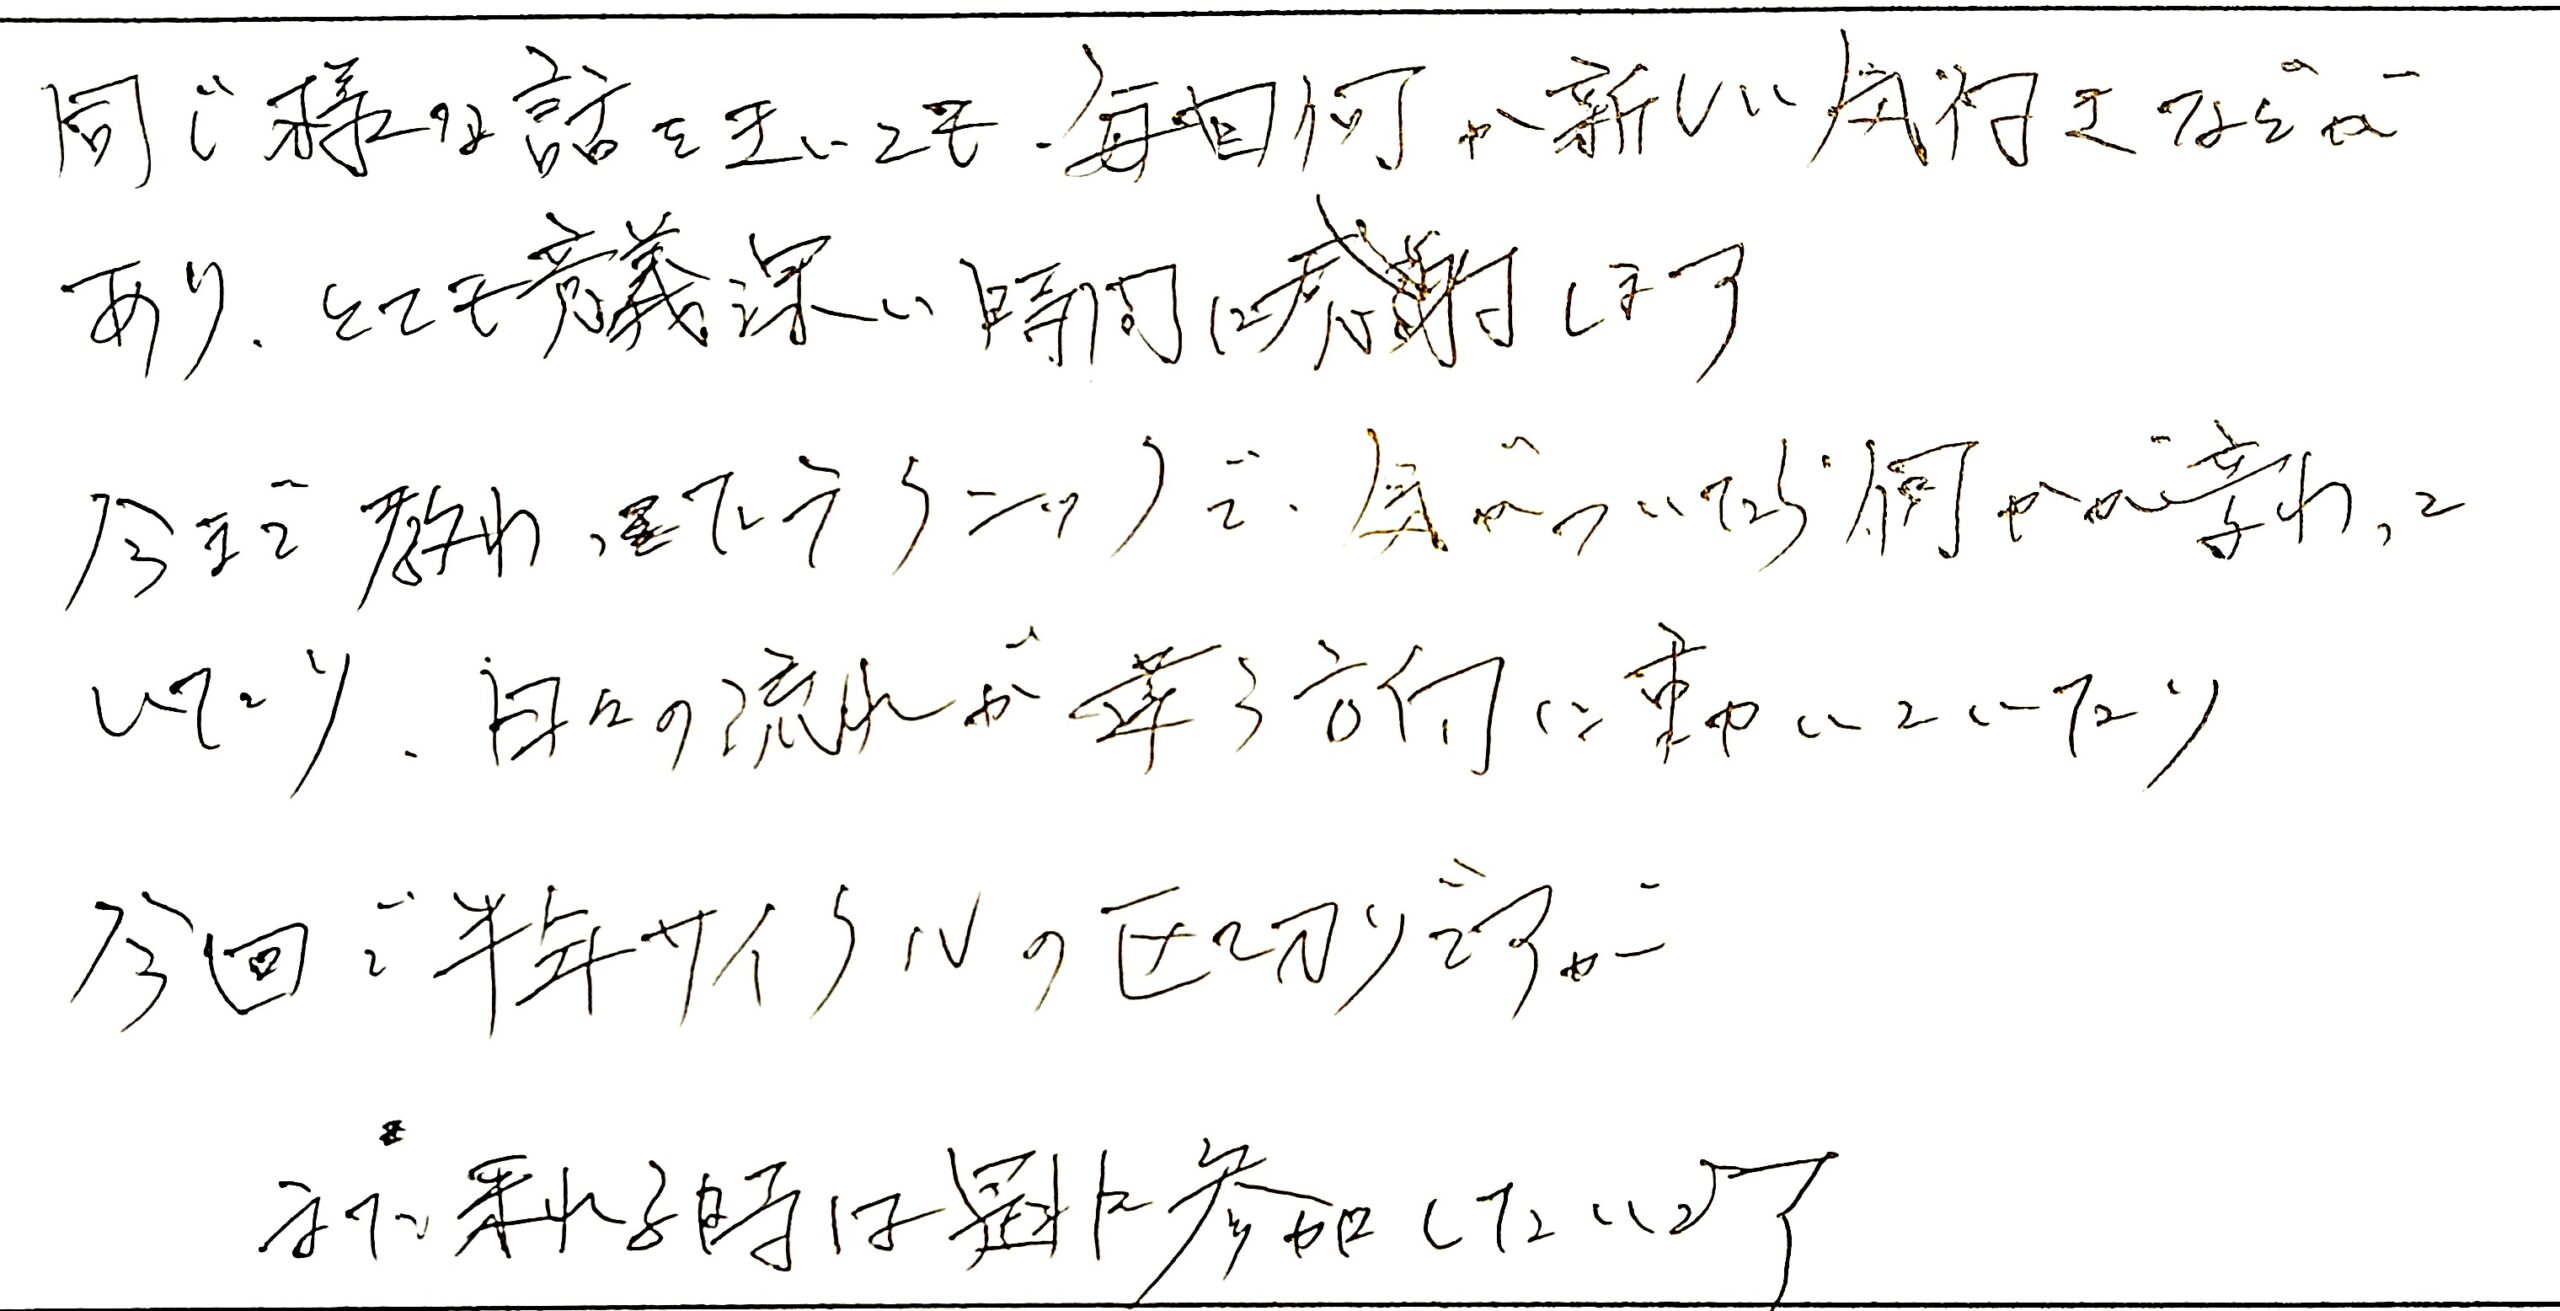 同じ様な話をきいても、毎回何か新しい気付きなどが
あり、とても意義深い時間に感謝します
今まで教わったテクニックで、気がついたら何かが変わって
いたり、日々の流れが華る方向に動いていたり
今回で半年サイクルの区切りですが
また来れる時は是非参加したいです